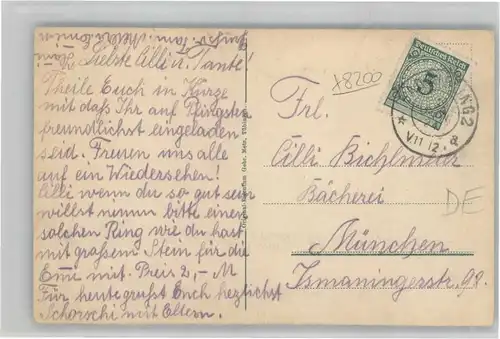 Liebste Cilli u. Tante!
Theile Euch in Kürze
mit daß Ihr auf Pfingsten
freundlichst eingeladen
seid. Freuen uns alle
auf ein Wiedersehen!
Cilli wenn du so gut sein
willst nimm bitte einen
solchen Ring wie du hast
mit großem Stein für die
Emi mit. Preis 2,- M
Für heute grüßt Euch herzlichst
Schorschi mit Eltern.
x8200
Deutsches Reich
5
2
V 11 12
Frl.
Cilli Bichlmeier
Bäckerei
München
Ismaningerstr. 98.
DE